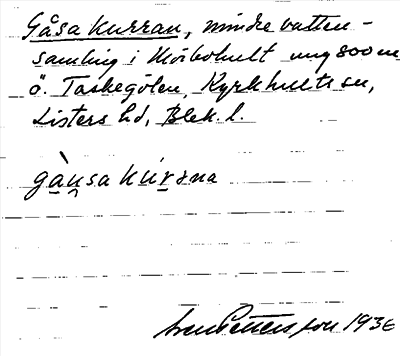 Gåsa kurran, mindre vatten-
samling i Mörbohult ung 800 m
ö. Taskegölen, Kyrkhults sn,
Listers hd, Blek. l.
gàu̯sa kúrəna
Sven Pettersson 1936